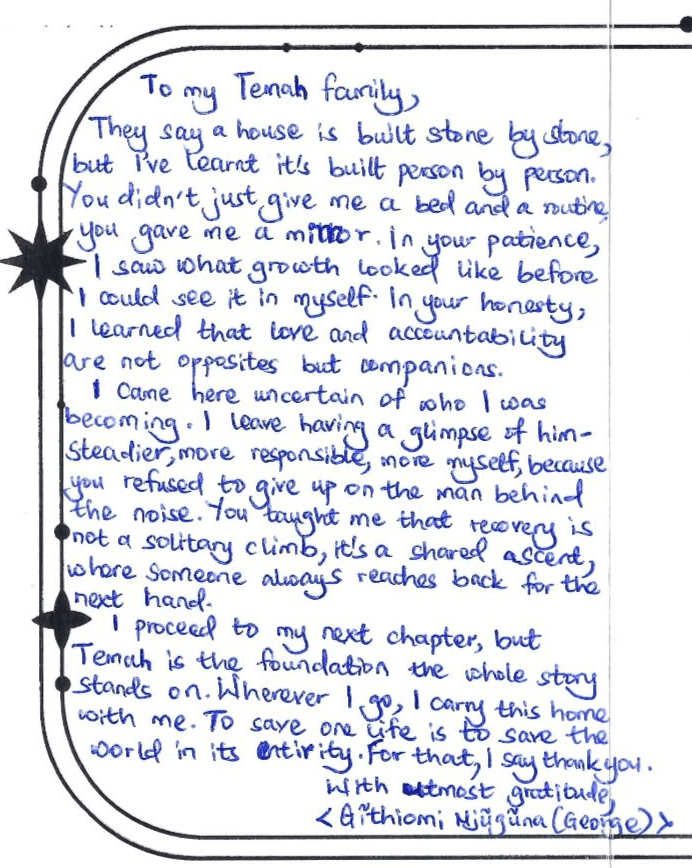 To my Temah family,
They say a house is built stone by stone,
but I've learnt it's built person by person.
You didn't just give me a bed and a routine,
you gave me a mirror. In your patience,
I saw what growth looked like before
I could see it in myself. In your honesty,
I learned that love and accountability
are not opposites but companions.
I came here uncertain of who I was
becoming. I leave having a glimpse of him-
steadier, more responsible, more myself, because
you refused to give up on the man behind
the noise. You taught me that recovery is
not a solitary climb, it's a shared ascent,
where someone always reaches back for the
next hand.
I proceed to my next chapter, but
Temah is the foundation the whole story
stands on. Wherever I go, I carry this home
with me. To save one life is to save the
world in its entirity. For that, I say thank you.
With utmost gratitude,
<Gĩthiomi Njũgũna (George)>